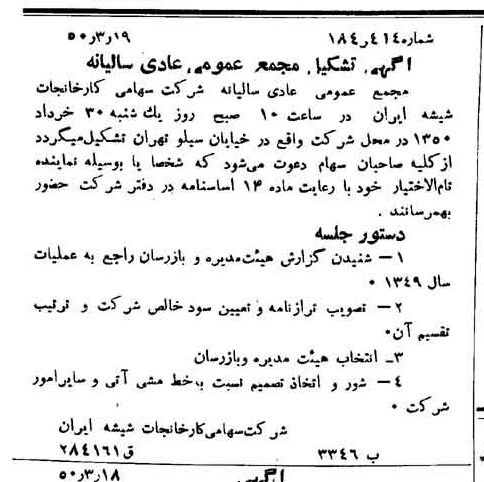 شماره ۱۸۴ر۴ر۱۴ ۱۹ر۳ر۵۰
آگهی تشکیل مجمع عمومی عادی سالیانه
مجمع عمومی عادی سالیانه شرکت سهامی کارخانجات
شیشه ایران در ساعت ۱۰ صبح روز یك شنبه ۳۰ خرداد
۱۳۵۰ در محل شرکت واقع در خیابان سیلو تهران تشکیل میگردد
از کلیه صاحبان سهام دعوت می‌شود که شخصا یا بوسیله نماینده
تام‌الاختیار خود با رعایت ماده ۱۴ اساسنامه در دفتر شرکت حضور
بهمرسانند .
دستور جلسه
۱- شنیدن گزارش هیئت‌مدیره و بازرسان راجع به عملیات
سال ۱۳۴۹ ۰
۲- تصویب ترازنامه و تعیین سود خالص شرکت و ترتیب
تقسیم آن۰
۳- انتخاب هیئت مدیره وبازرسان
۴- شور و اتخاذ تصمیم نسبت به‌خط مشی آتی و سایرامور
شرکت ۰
شرکت‌سهامی‌کارخانجات شیشه ایران
ب ۳۳۴۶ ق۲۸۴۱۶۱
۱۸ر۳ر۵۰ آگهی